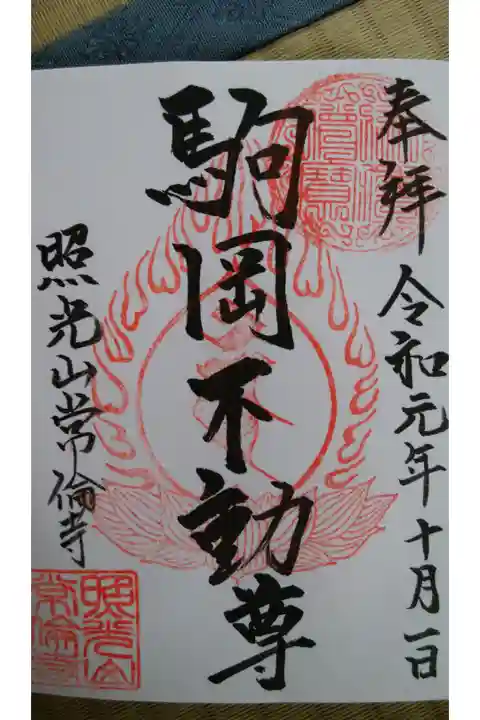 奉拝
令和元年十月一日
駒岡不動尊
照光山常倫寺
照光山
常倫寺